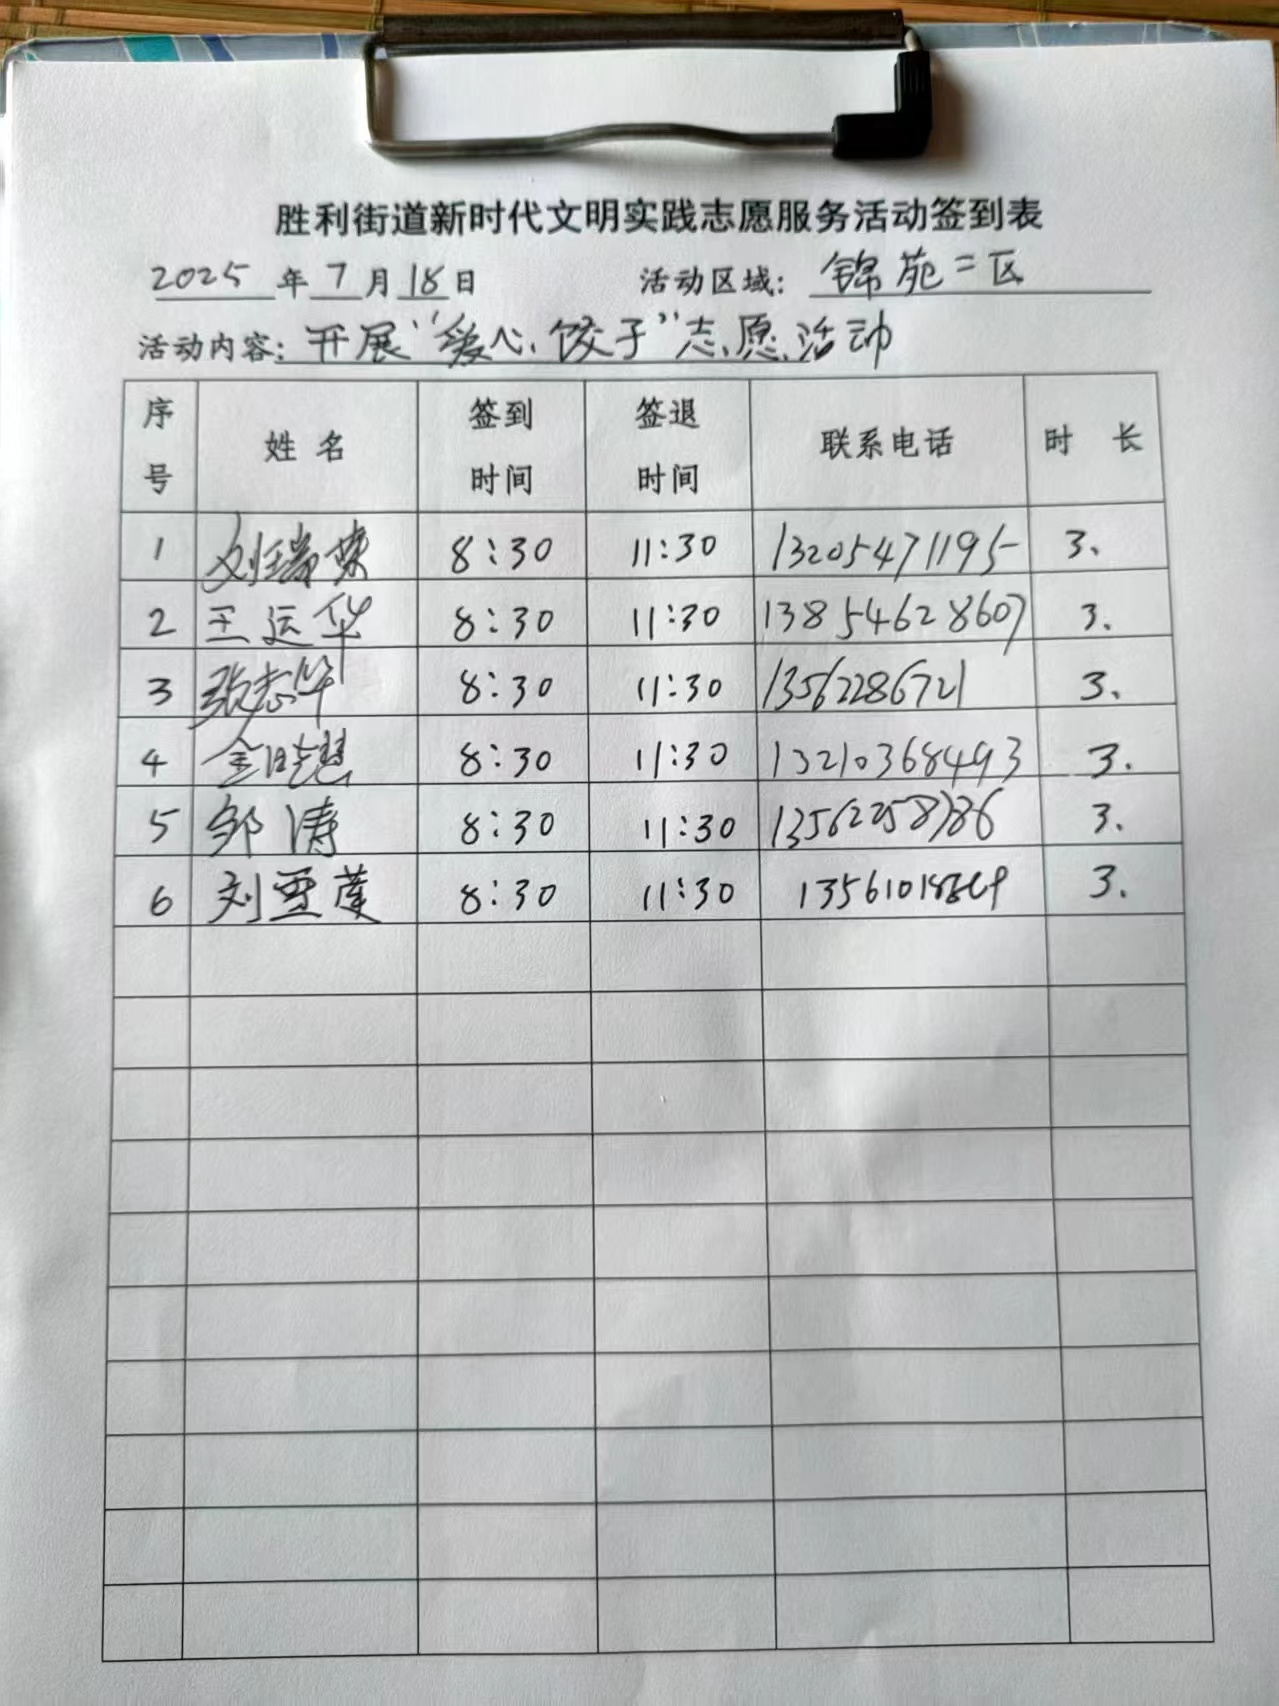 胜利街道新时代文明实践志愿服务活动签到表
2025年7月18日 活动区域：锦苑二区
活动内容：开展“爱心饺子”志愿活动
序号 姓名 签到时间 签退时间 联系电话 时长
1 刘瑞荣 8:30 11:30 13205471195 3、
2 王运华 8:30 11:30 13854628607 3、
3 张志华 8:30 11:30 13562286721 3、
4 金晓慧 8:30 11:30 13210368493 3.
5 邹涛 8:30 11:30 3.
6 刘雪莲 8:30 11:30 3.